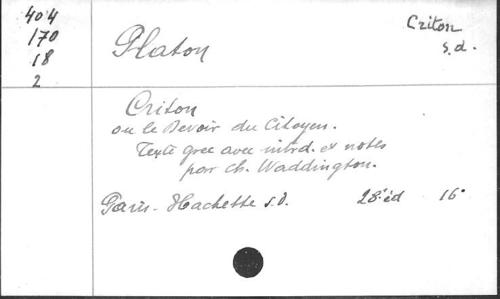 404
170
18
2
Platon
Criton
s.d.
Criton
ou le Devoir du Citoyen.
Texte grec avec introd. et notes
par Ch. Waddington.
Paris - Hachette s.d. 28e éd 16°